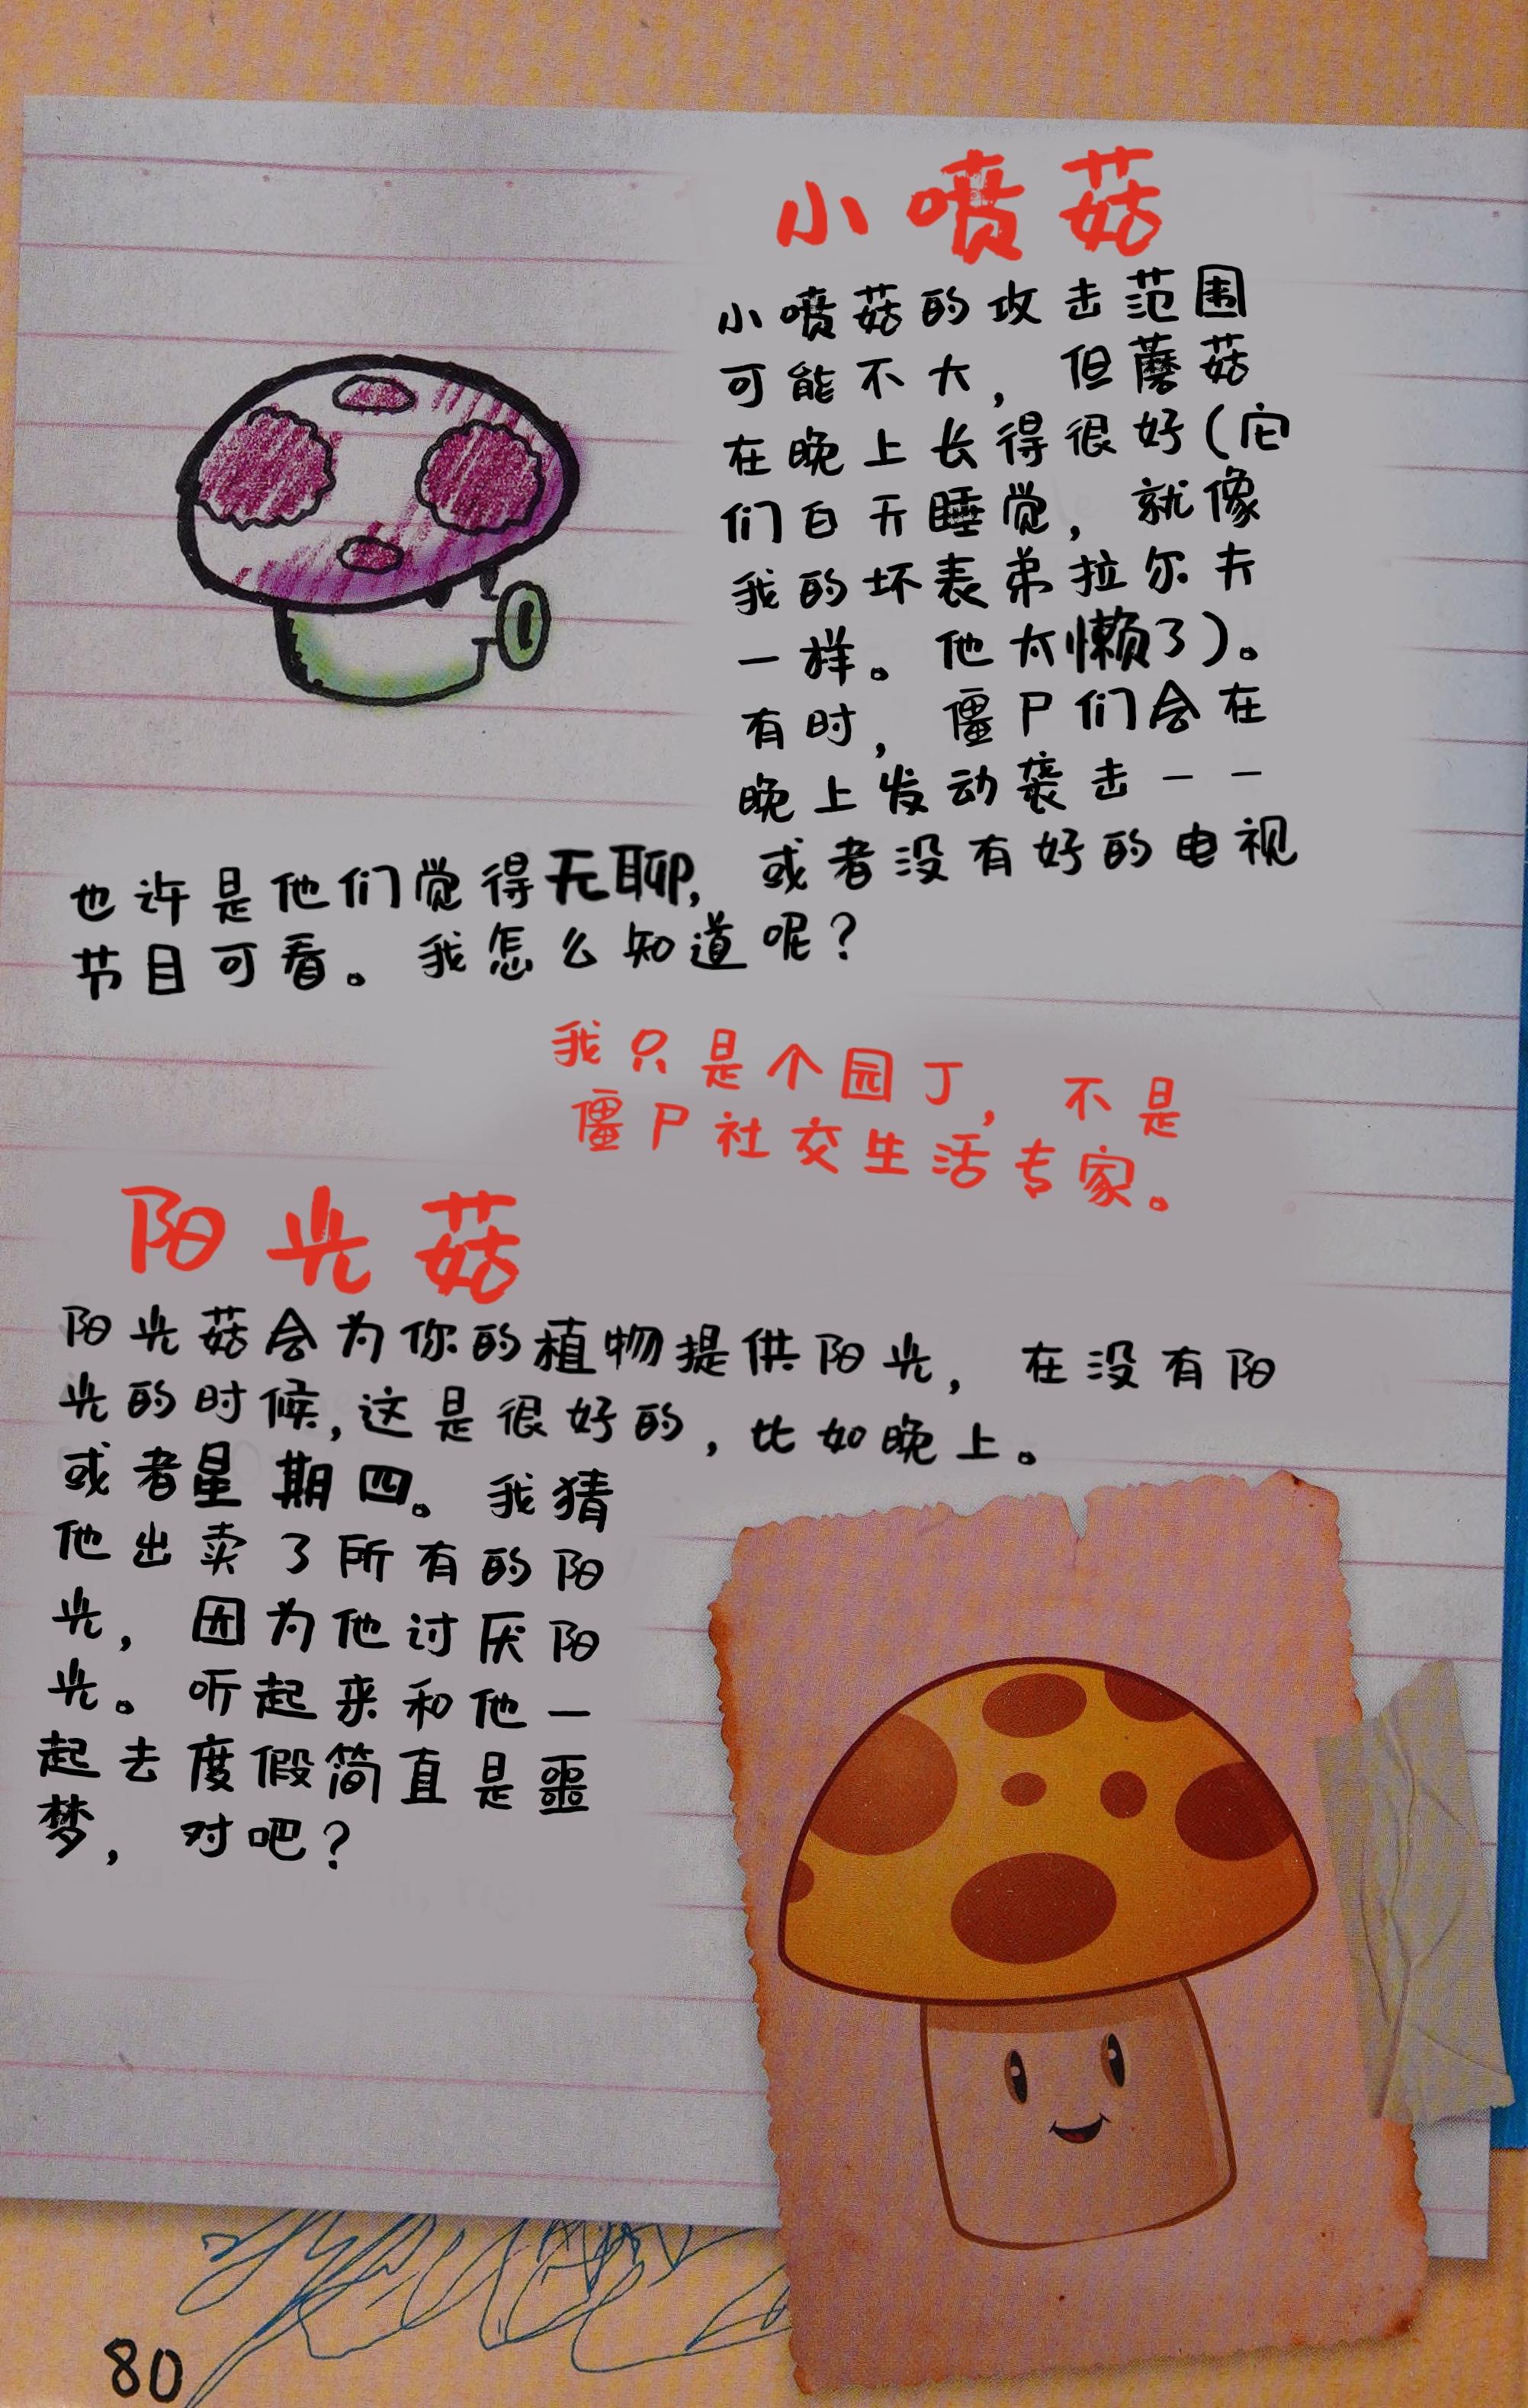 小喷菇
小喷菇的攻击范围
可能不大，但蘑菇
在晚上长得很好（它
们白天睡觉，就像
我的坏表弟拉尔夫
一样。他太懒了）。
有时，僵尸们会在
晚上发动袭击——
也许是他们觉得无聊，或者没有好的电视
节目可看。我怎么知道呢？
我只是个园丁，不是
僵尸社交生活专家。
阳光菇
阳光菇会为你的植物提供阳光，在没有阳
光的时候，这是很好的，比如晚上。
或者星期四。我猜
他出卖了所有的阳
光，因为他讨厌阳
光。听起来和他一
起去度假简直是噩
梦，对吧？
80